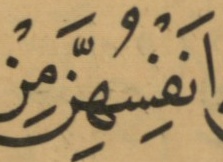 اَنْفُسِهِنَّ مِنْ